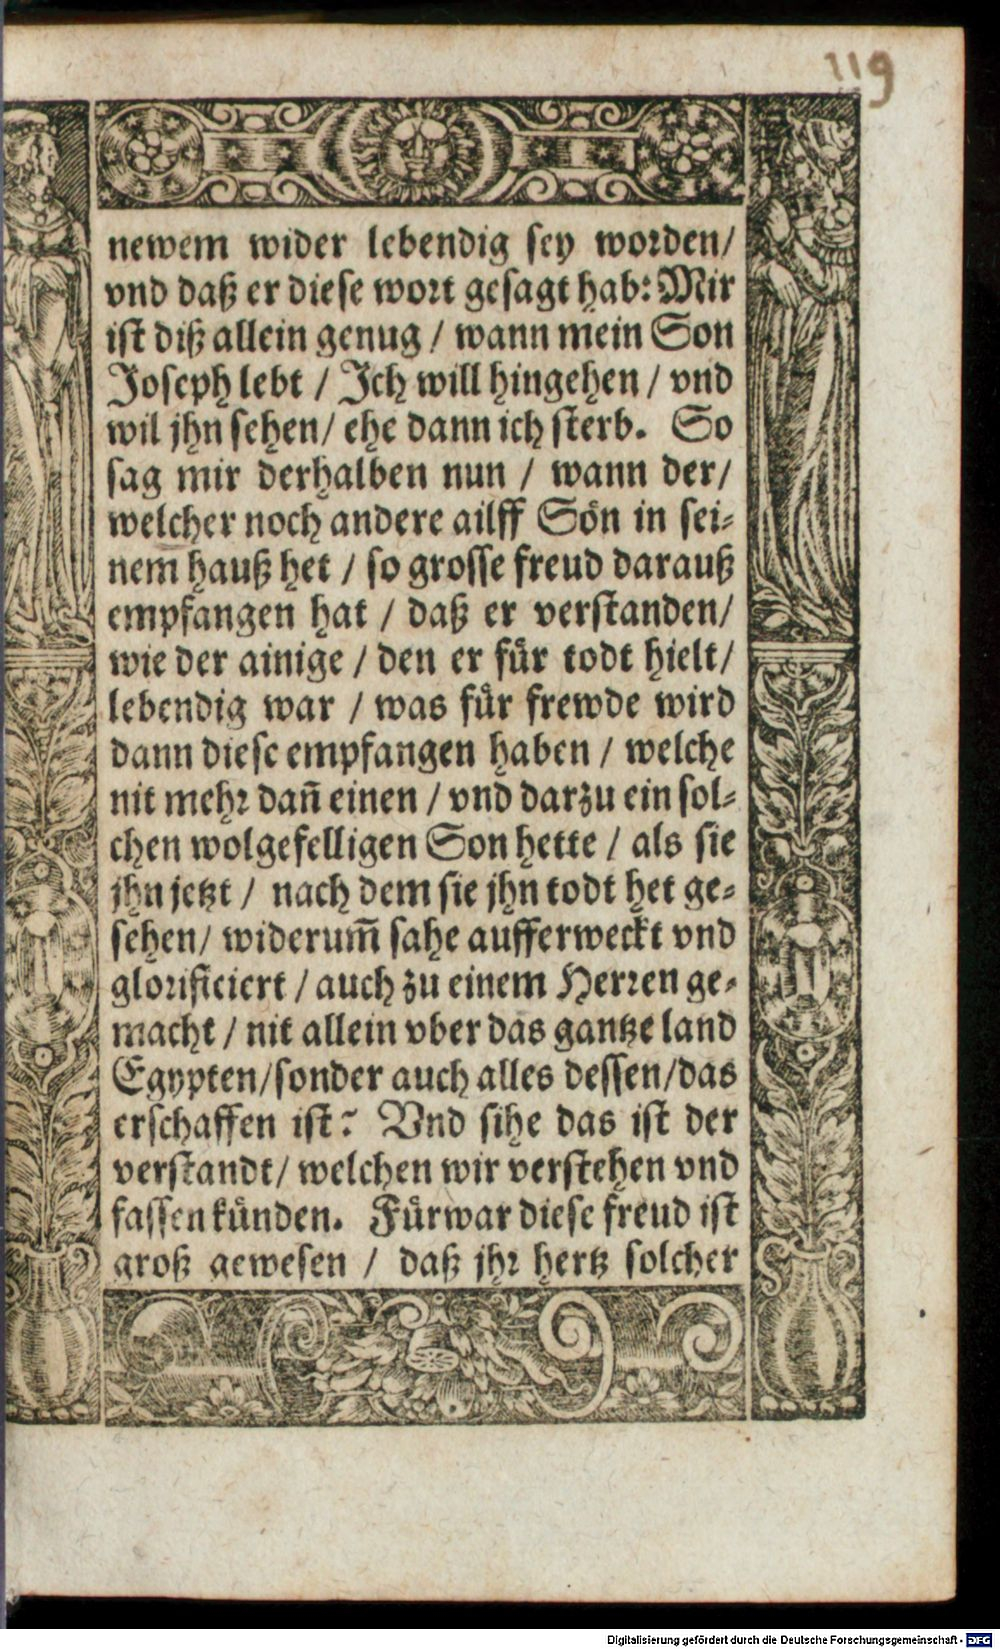 119
newem wider lebendig sey worden/
vnd daß er diese wort gesagt hab: Mir
ist diß allein genug / wann mein Son
Joseph lebt / Ich will hingehen / vnd
wil jhn sehen/ ehe dann ich sterb. So
sag mir derhalben nun / wann der/
welcher noch andere ailff Sön in sei-
nem hauß het / so grosse freud darauß
empfangen hat / daß er verstanden/
wie der ainige / den er für todt hielt/
lebendig war / was für frewde wird
dann diese empfangen haben / welche
nit mehr dañ einen / vnd darzu ein sol-
chen wolgefelligen Son hette / als sie
jhn jetzt / nach dem sie jhn todt het ge-
sehen/ widerum̃ sahe aufferweckt vnd
glorificiert / auch zu einem Herren ge-
macht / nit allein vber das gantze land
Egypten/sonder auch alles dessen/das
erschaffen ist? Vnd sihe das ist der
verstandt/ welchen wir verstehen vnd
fassen künden. Fürwar diese freud ist
groß gewesen / daß jhr hertz solcher
Digitalisierung gefördert durch die Deutsche Forschungsgemeinschaft - DFG